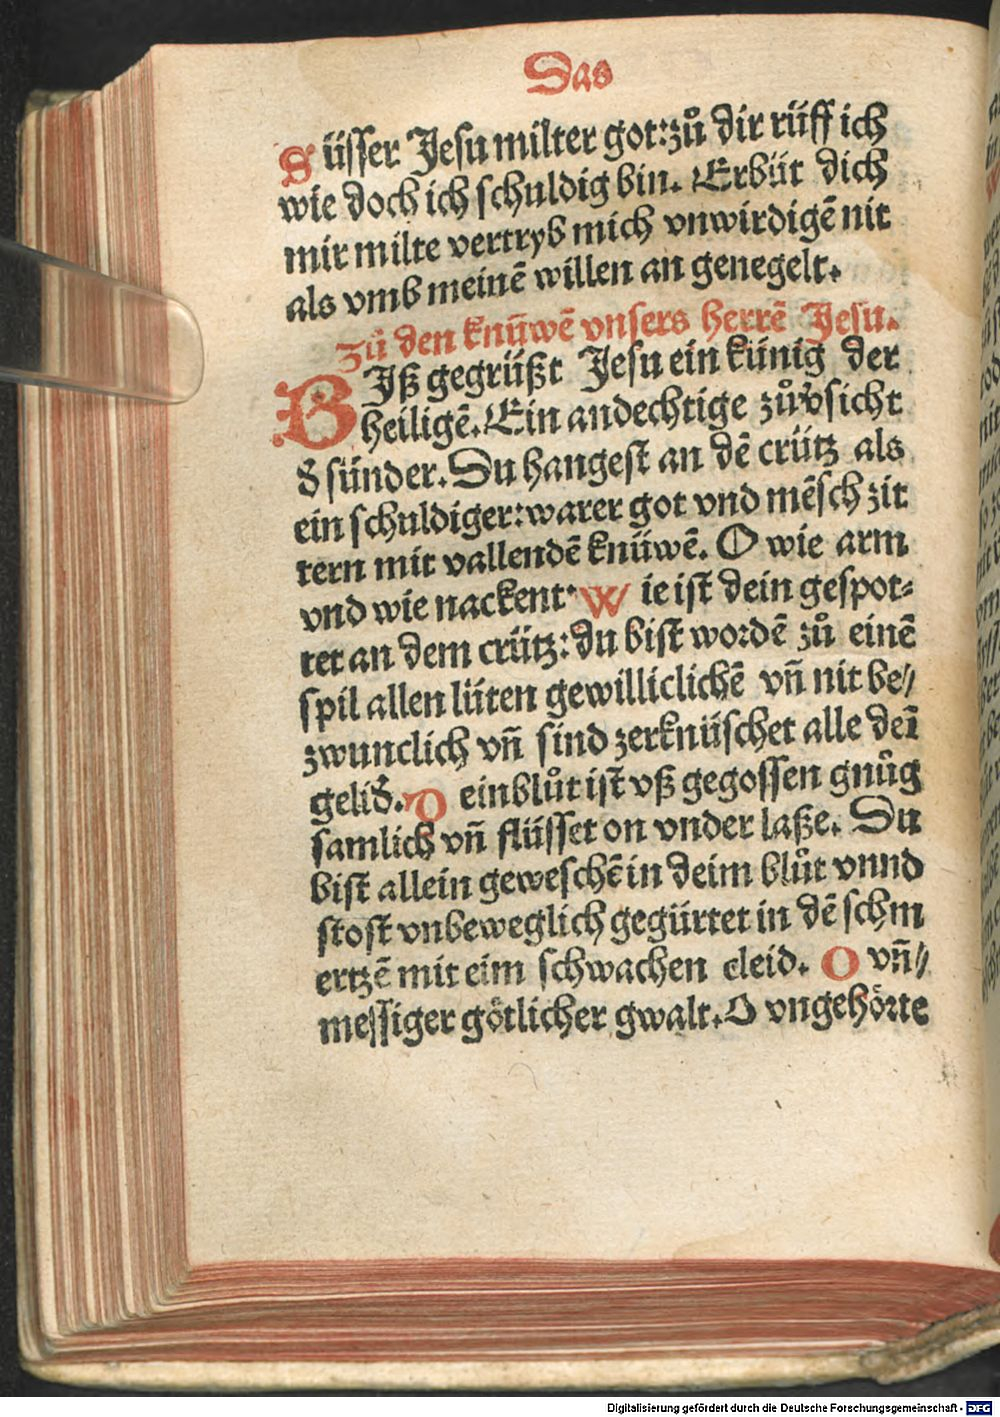 Das
Süsser Jesu milter got:zů dir rüff ich
wie doch ich schuldig bin. Erbüt dich
mir milte vertryb mich vnwirdigē nit
als vmb meinē willen an genegelt.
Zů den knüwē vnsers herrē Jesu.
BIß gegrüßt Jesu ein künig der
heiligē. Ein andechtige zův̓sicht
d̕ sünder. Du hangest an dē crütz als
ein schuldiger: warer got vnd mēsch zit
tern mit vallendē knüwē. O wie arm
vnd wie nackent· Wie ist dein gespot-
tet an dem crütz: du bist wordē zů einē
spil allen lüten gewilliclichē vn̄ nit be//
zwunclich vn̄ sind zerknüschet alle deī
gelid̕. Dein blůt ist vß gegossen gnůg
samlich vn̄ flüsset on vnder laße. Du
bist allein geweschē in deim blůt vnnd
stost vnbeweglich gegürtet in dē schm
ertzē mit eim schwachen cleid. O vn̄//
messiger götlicher gwalt. O vngehörte
Digitalisierung gefördert durch die Deutsche Forschungsgemeinschaft - DFG